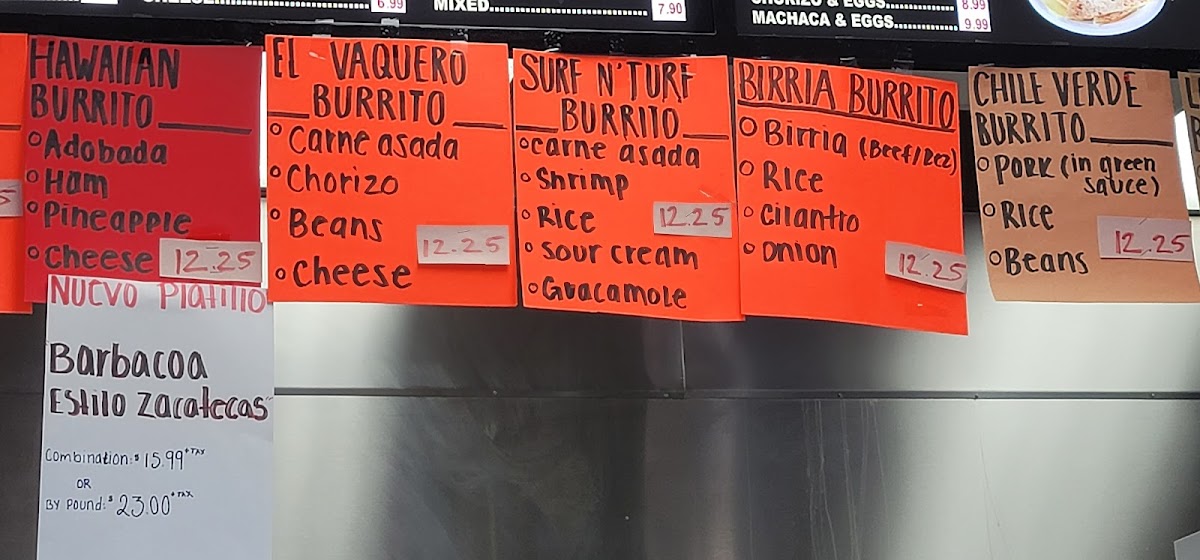 6.99
MIXED
7.90
CHORIZO & EGGS
8.99
MACHACA & EGGS
9.99
HAWAIIAN
BURRITO
Adobada
Ham
Pineapple
Cheese
12.25
EL VAQUERO
BURRITO
Carne asada
Chorizo
Beans
Cheese
12.25
SURF N' TURF
BURRITO
carne asada
Shrimp
Rice
Sour cream
Guacamole
12.25
BIRRIA BURRITO
Birria (Beef/Rez)
Rice
Cilantro
Onion
12.25
CHILE VERDE
BURRITO
PORK (in green
sauce)
Rice
Beans
12.25
NUEVO Platillo
Barbacoa
Estilo Zacatecas
Combination: $15.99 +TAX
OR
BY Pound: $23.00 +TAX